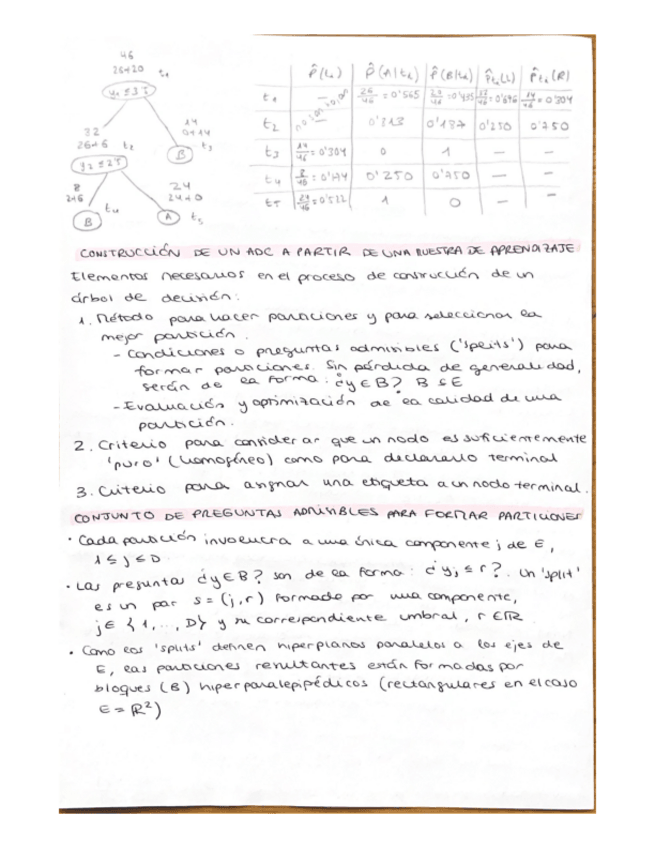 46
26+20 t1
y1 ≤ 35
32
26+6 t2
14
0+14
B t3
y2 ≤ 25
8
2+6 t4
B
24
24+0
A t5
P̂(t) P̂(A|t) P̂(B|t) P̂t(L) P̂t(R)
t1 — 26/46 = 0'565 = 0'435 = 0'696 14/46 = 0'304
t2 — 0'813 0'187 0'250 0'750
t3 14/46 = 0'304 0 1 — —
t4 8/46 = 0'174 0'250 0'750 — —
t5 24/46 = 0'522 1 0 — —
CONSTRUCCIÓN DE UN ADC A PARTIR DE UNA MUESTRA DE APRENDIZAJE
Elementos necesarios en el proceso de construcción de un
árbol de decisión:
1. Método para hacer particiones y para seleccionar la
mejor partición.
- Condiciones o preguntas admisibles ('splits') para
formar particiones. Sin pérdida de generalidad,
serán de la forma: ¿y∈B? B ⊆ E
- Evaluación y optimización de la calidad de una
partición.
2. Criterio para considerar que un nodo es suficientemente
'puro' (homogéneo) como para declararlo terminal
3. Criterio para asignar una etiqueta a un nodo terminal.
CONJUNTO DE PREGUNTAS ADMISIBLES PARA FORMAR PARTICIONES
· Cada partición involucra a una única componente j de E,
1 ≤ j ≤ D.
· Las preguntas ¿y∈B? son de la forma: ¿yj ≤ r?. Un 'split'
es un par s = (j,r) formado por una componente,
j∈ {1,..., D} y su correspondiente umbral, r ∈ ℝ.
· Como los 'splits' definen hiperplanos paralelos a los ejes de
E, las particiones resultantes están formadas por
bloques (B) hiperparalepipédicos (rectangulares en el caso
E = ℝ²)